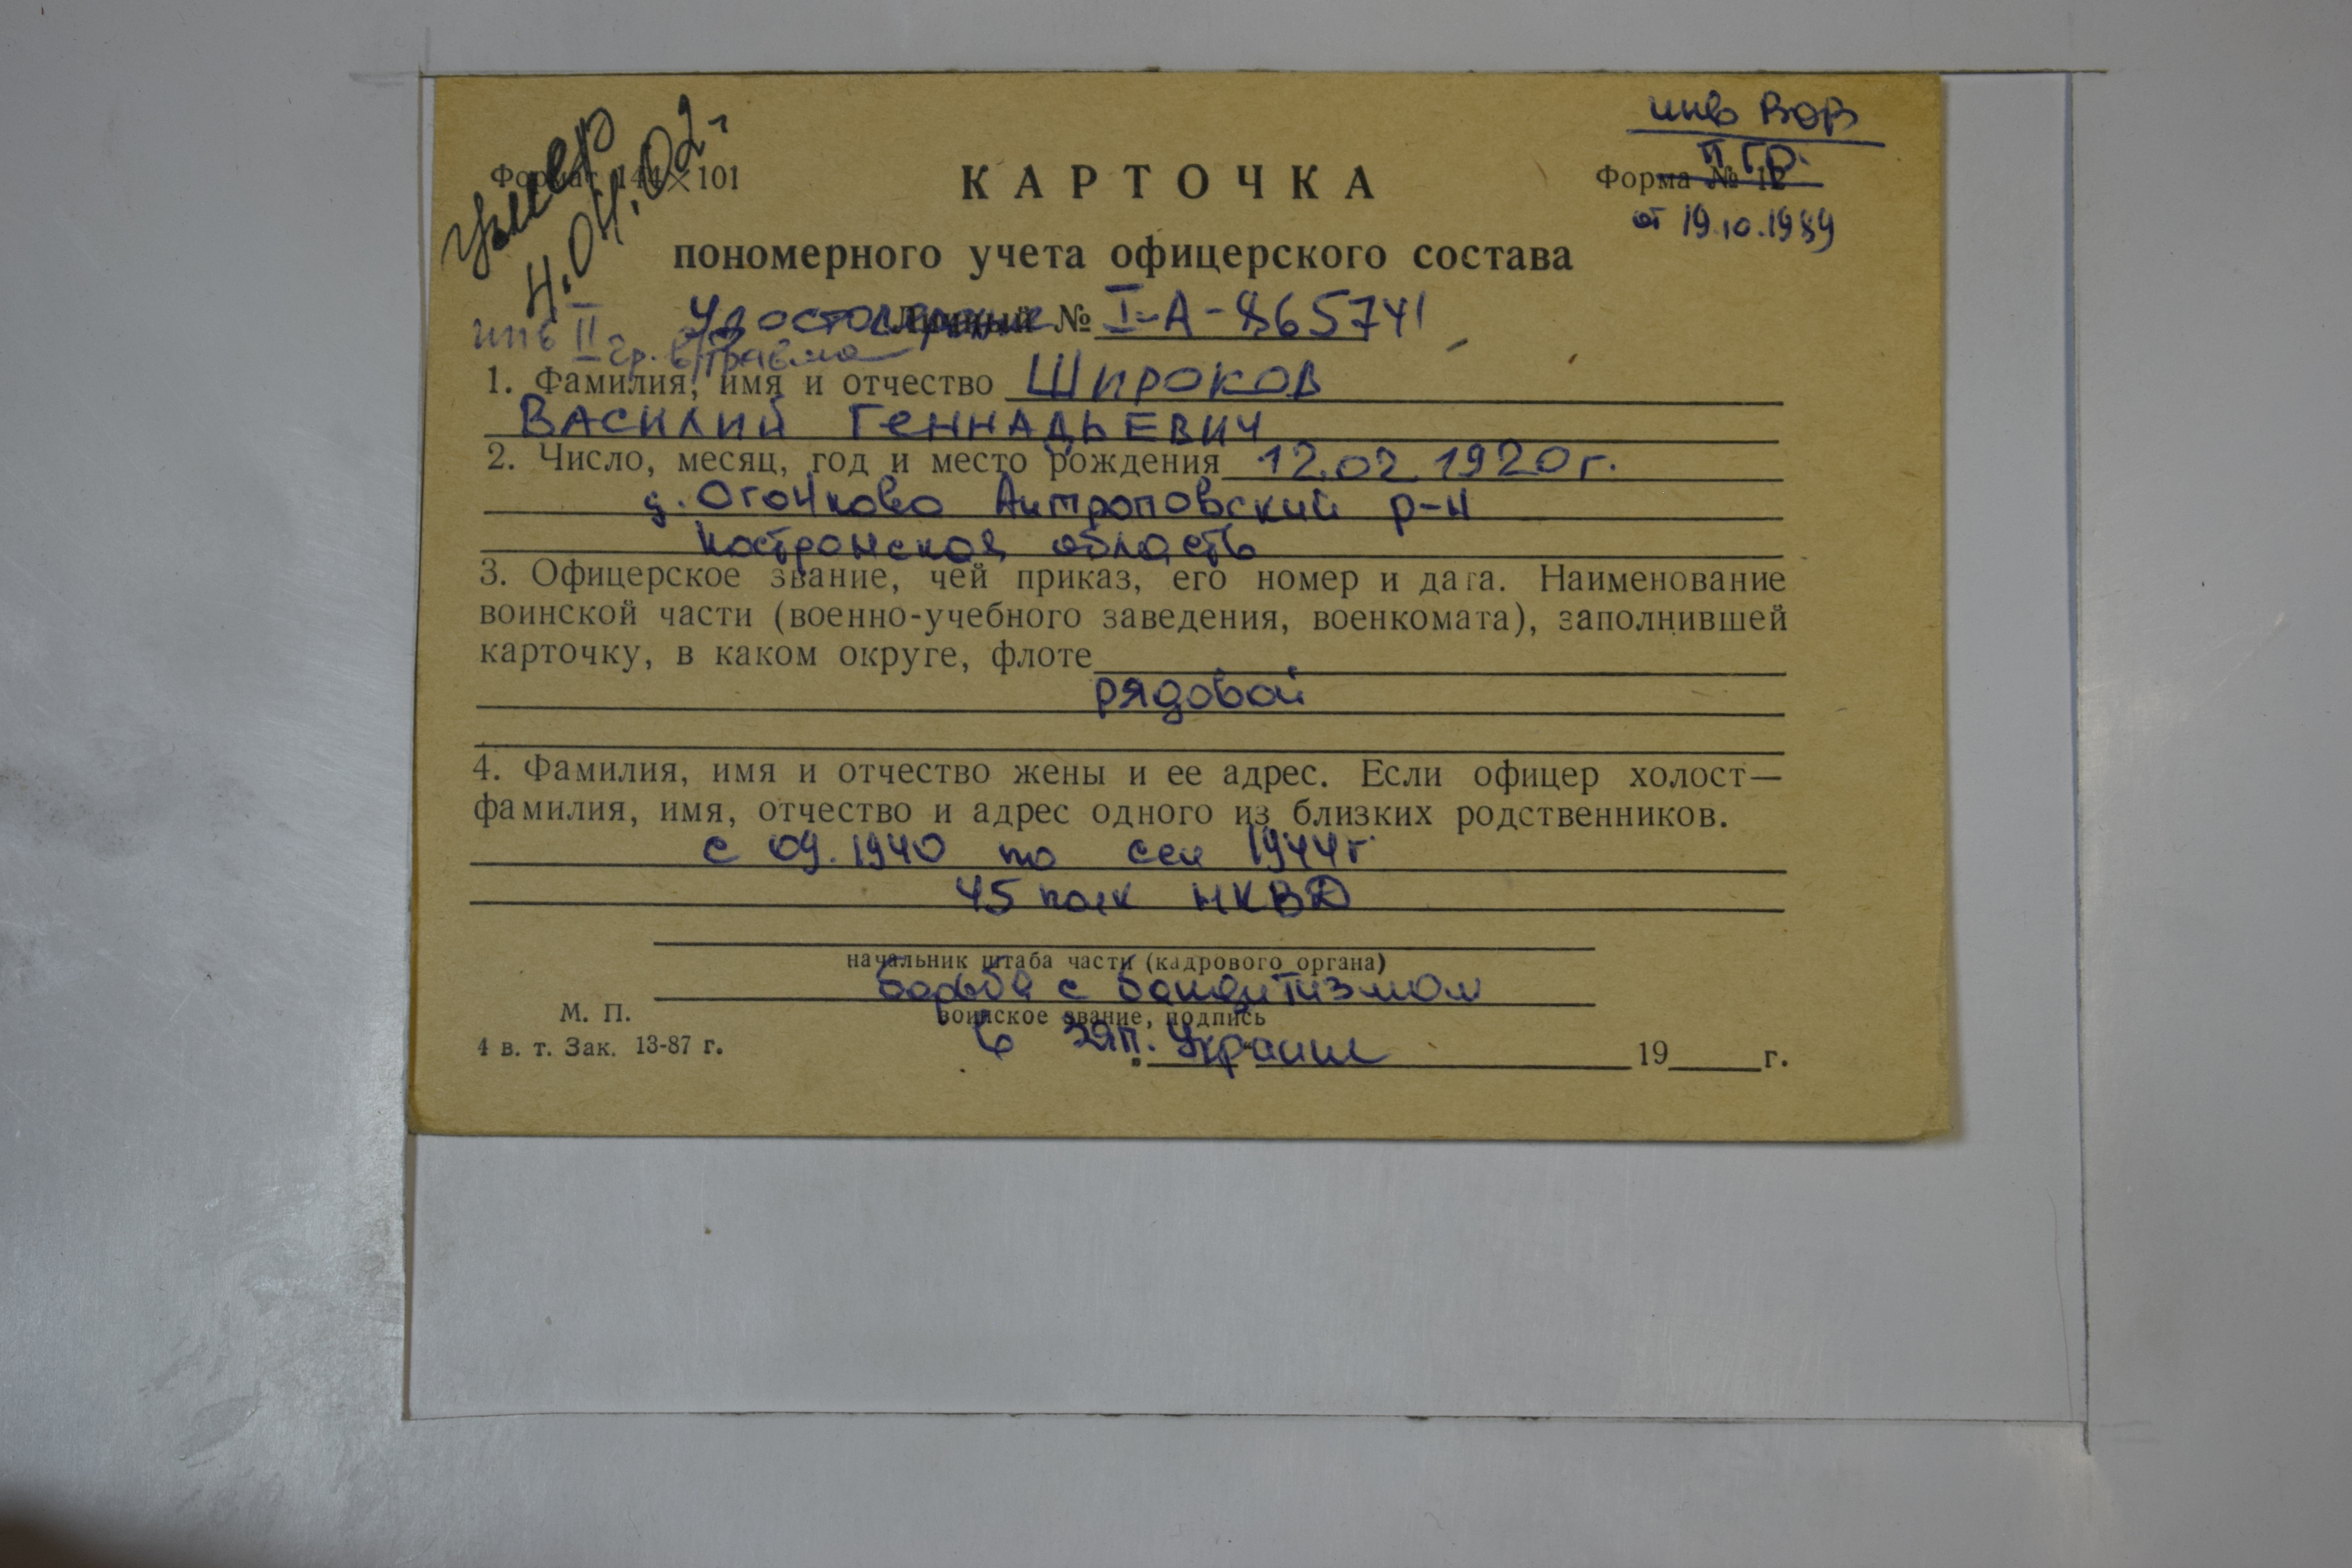 умер
4.04.02 г
инв ВОВ
II гр.
от 19.10.1989
Формат 144×101
КАРТОЧКА
Форма № 12
пономерного учета офицерского состава
инв II гр. в/травма
Удостоверение Личный № I-А-865741
1. Фамилия, имя и отчество Широков
Василий Геннадьевич
2. Число, месяц, год и место рождения 12.02.1920 г.
д. Огочково Антроповский р-н
Костромская область
3. Офицерское звание, чей приказ, его номер и дата. Наименование
воинской части (военно-учебного заведения, военкомата), заполнившей
карточку, в каком округе, флоте
рядовой
4. Фамилия, имя и отчество жены и ее адрес. Если офицер холост—
фамилия, имя, отчество и адрес одного из близких родственников.
с 09.1940 по сен 1944 г
45 полк НКВД
начальник штаба части (кадрового органа)
борьба с бандитизмом
М. П.
воинское звание, подпись
в зап. Украине
4 в. т. Зак. 13-87 г.
19 г.